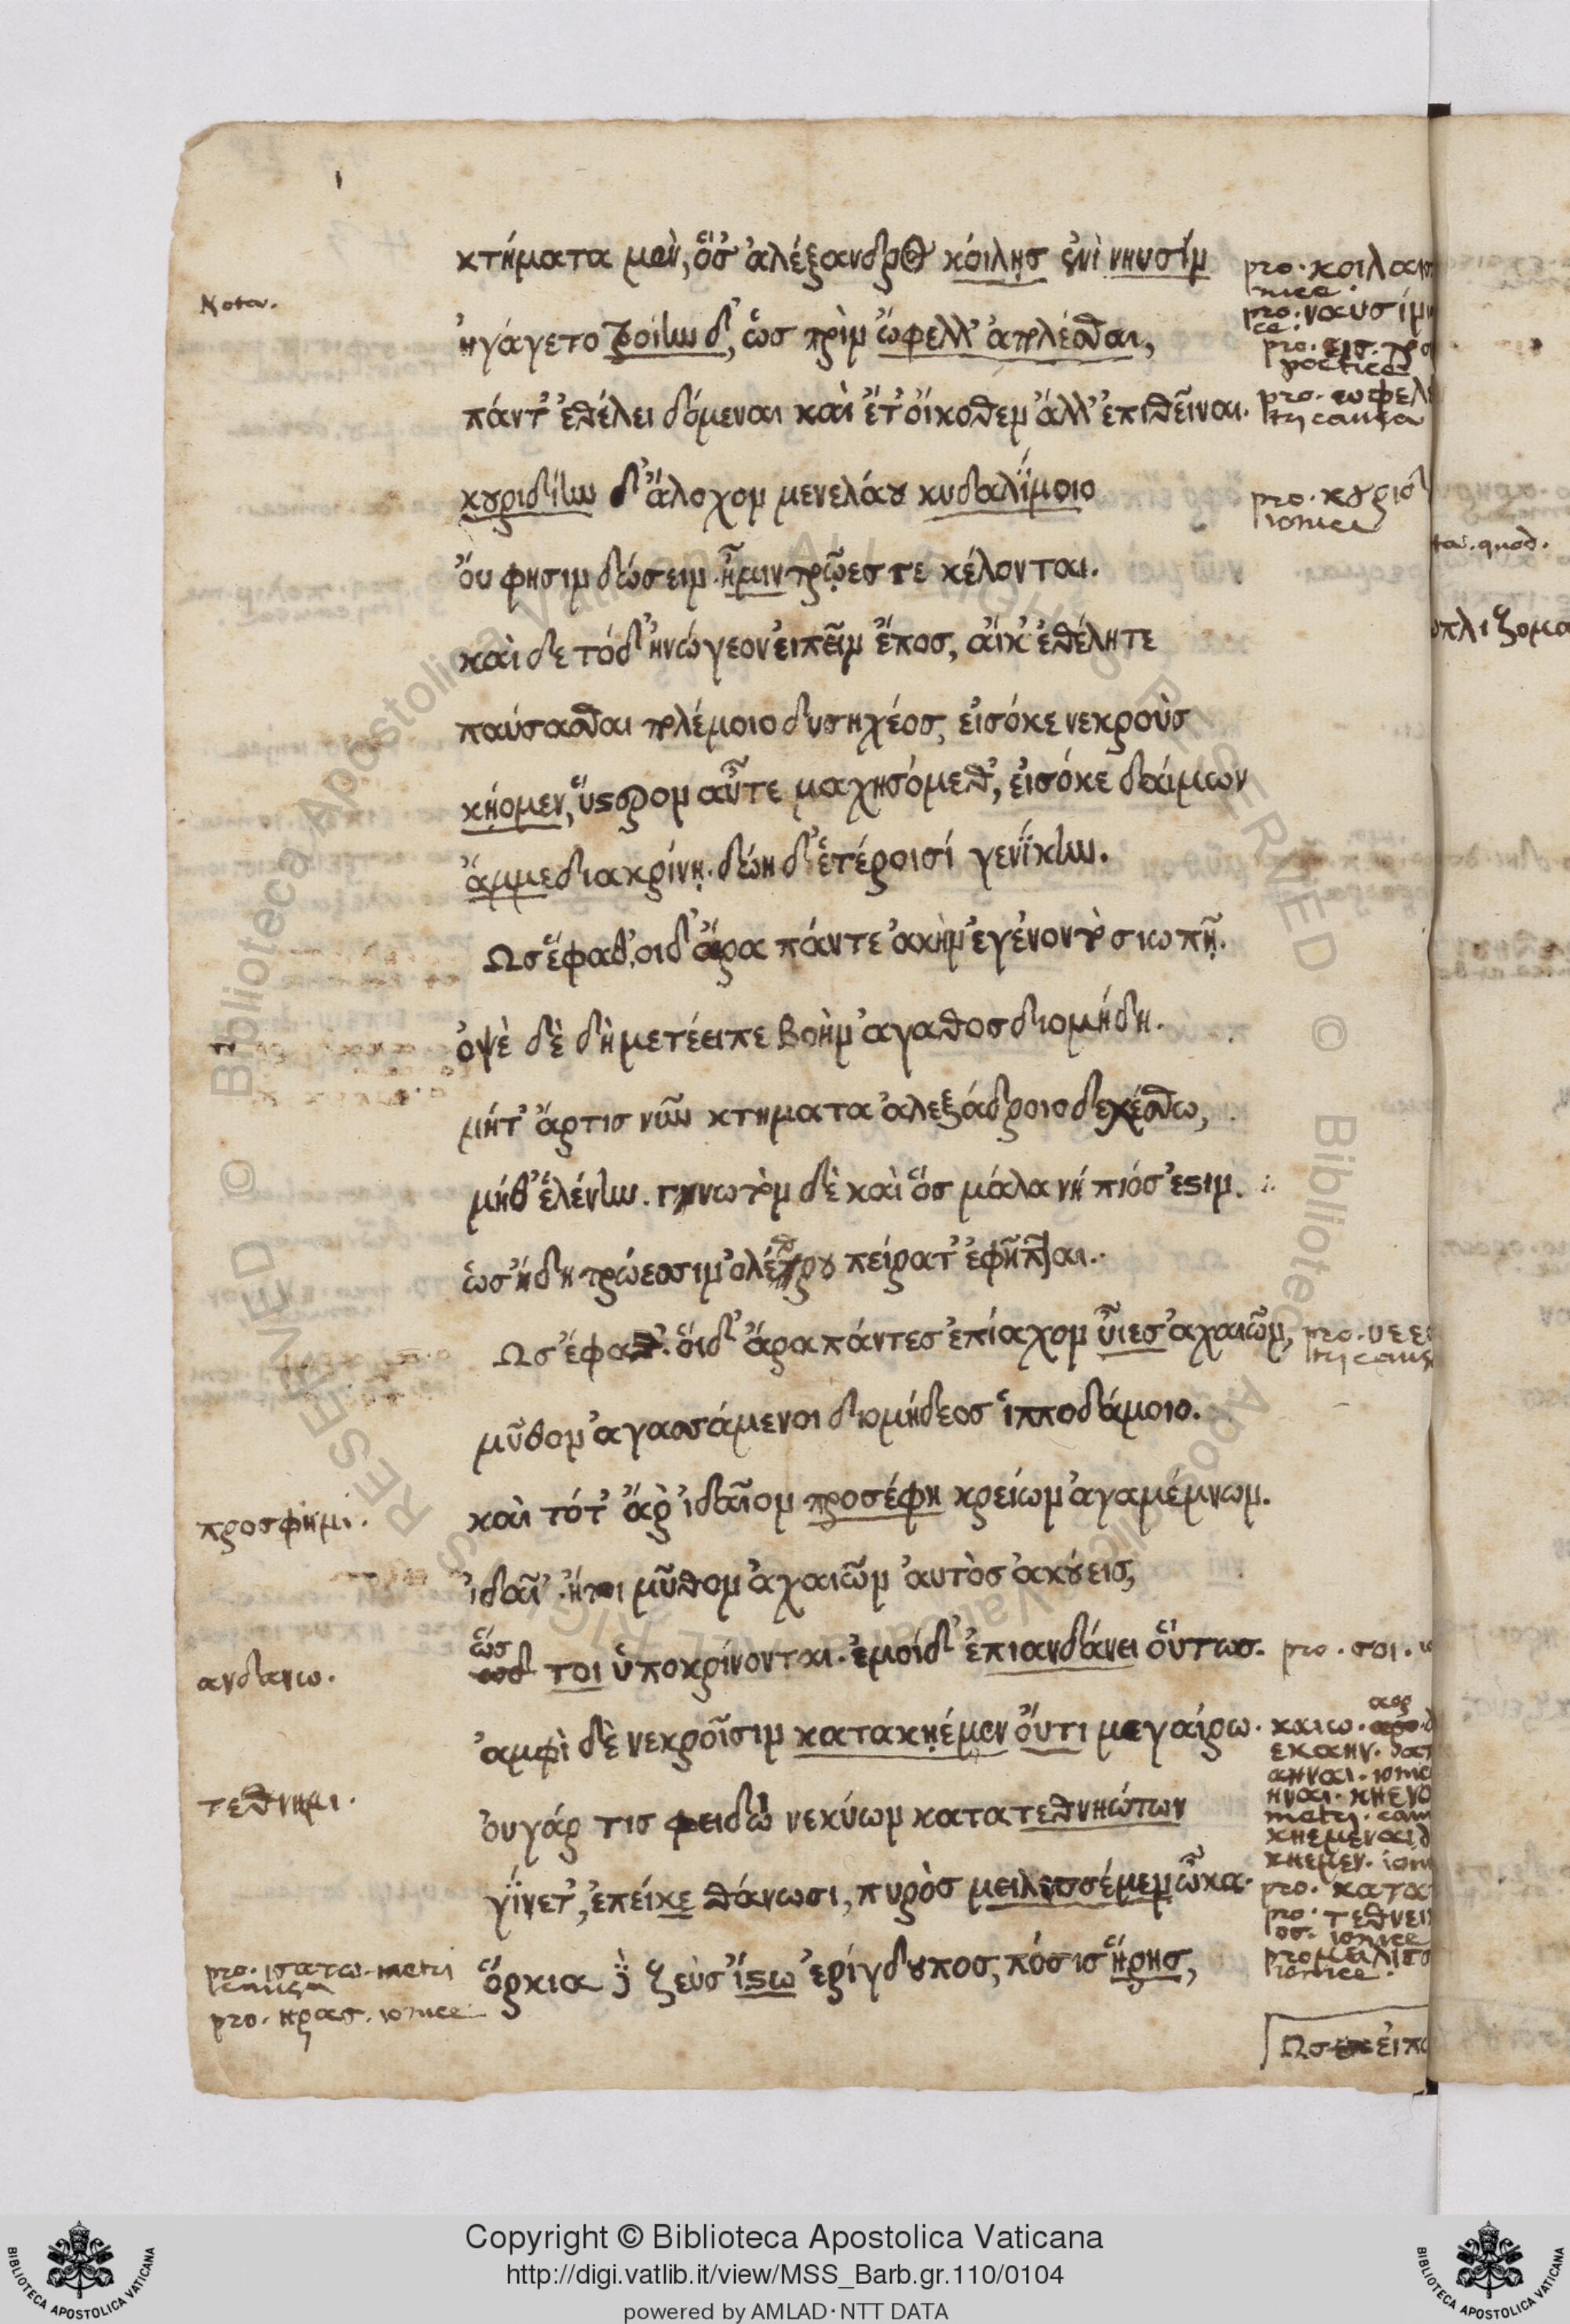 κτήματα μὲν, ὅσ' ἀλέξανδρος κοίλῃσ ἐνὶ νηυσὶν
Nota.
ἠγάγετο τροίην δ', ὡσ πρὶν ὤφελλ' ἀπολέσθαι,
πάντ' ἐθέλει δόμεναι καὶ ἔτ' οἴκοθεν ἄλλ' ἐπιθεῖναι.
κουριδίην δ' ἄλοχον μενελάου κυδαλίμοιο
ὄυ φησιν δώσειν. ἦμιν τρῶεσ τε κέλονται.
καὶ δε τόδ' ἠνώγεον ἐιπεῖν ἔπος, ἄικ' ἐθέλητε
παύσασθαι πολέμοιο δυσηχέοσ, εἰσόκε νεκροὺσ
κήομεν, ὕστερον αὖτε μαχησόμεθ', ἐισόκε δαίμων
ἄμμε διακρίνῃ. δώη δ' ἑτέροισί γε νίκην.
Ωσ ἔφαθ', οιδ' ἄρα πάντε ἀκὴν ἐγένοντο σιωπῇ.
ὀψὲ δὲ δὴ μετέειπε βοὴν ἀγαθοσ διομήδη.
μήτ' ἄρτισ νῦν κτηματα ἀλεξάδροιο δεχέσθω,
μήθ' ἑλένην. γνωτὸν δὲ καὶ ὅσ μάλα νήπιόσ ἐστιν.
ὡσ ἤδη τρώεσσιν ὀλέθρου πείρατ' ἐφῆπται.
Ωσ ἔφαθ'. ὅιδ' ἄρα πάντεσ ἐπίαχον ὖιεσ ἀχαιῶν,
μῦθον ἀγασσάμενοι διομήδεοσ ἱπποδάμοιο.
καὶ τότ' ἄρ' ἰδαῖον προσέφη κρείων ἀγαμέμνων.
προσφημι.
ἰδαῖ' ἤτοι μῦθον ἀχαιῶν ἀυτὸσ ἀκούεισ,
ὥσ τοι ὑποκρίνονται. ἐμοίδ' ἐπιανδάνει ὅυτωσ. pro. σοι.
ανδανω.
ἀμφὶ δὲ νεκροῖσιν κατακῃέμεν ὄυτι μεγαίρω.
τεθνημι.
ὀυγάρ τισ φειδὼ νεκύων κατατεθνηώτων
γίνετ', ἐπείκε θάνωσι, πυρὸσ μειλισσέμεν ὦκα.
pro. ιστατω. metri causa
ὅρκια δὲ ζεὺσ ἴστω ἐρίγδουποσ, πόσισ ἥρησ,
pro. ηρασ. ionice
pro. κοιλαισ
pro. ναυσίν
poetice
pro. ωφελ
tri causa
ionice
pro. υεε
καιω.
εκαην.
ιοnice
metri. cau
κηεμεναι
κηεμεν. ion
pro. κατα
pro. τεθνει
οσ. ionice
pro μειλισσ
ionice.
Ωσ ειπ